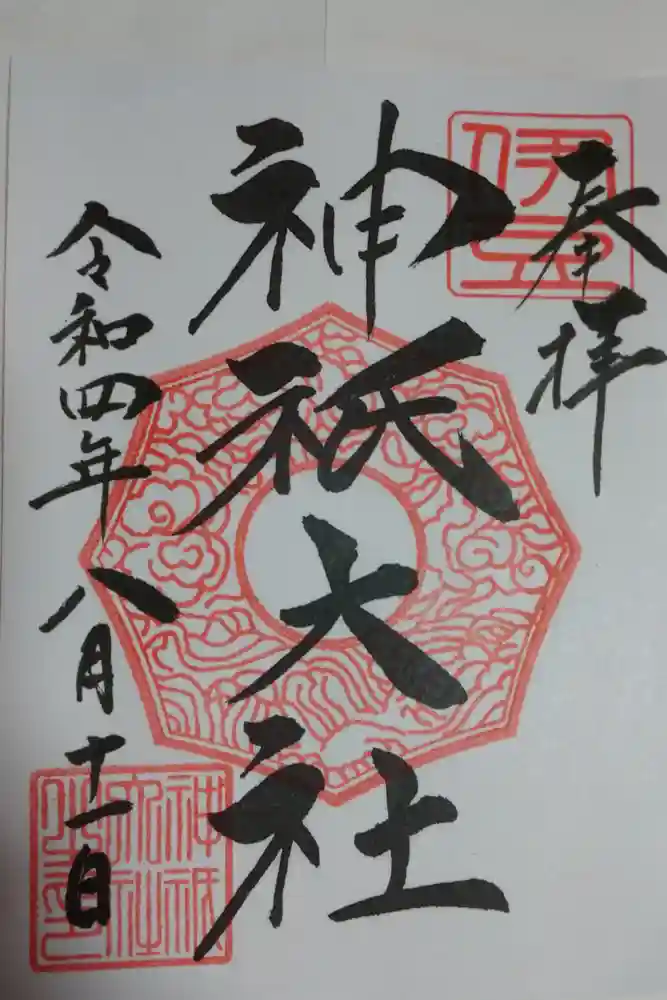 奉拝
伊豆
神祇大社
令和四年八月十一日
神祇
大社